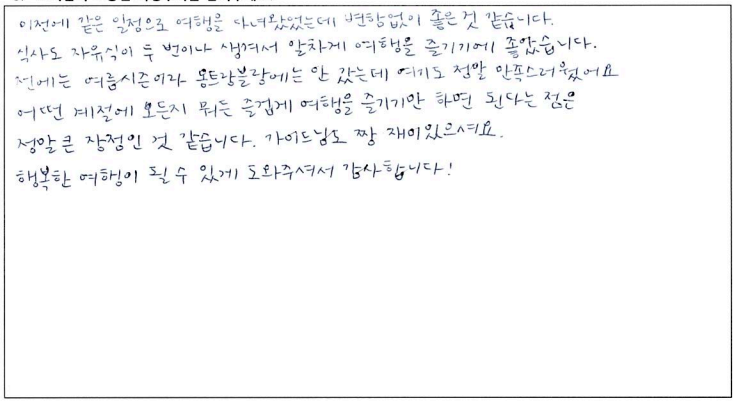 이전에 같은 일정으로 여행을 다녀왔었는데 변함없이 좋은 것 같습니다.
식사도 자유식이 두 번이나 생겨서 알차게 여행을 즐기기에 좋았습니다.
전에는 여름시즌이라 몽트랑블랑에는 안 갔는데 여기도 정말 만족스러웠어요
어떤 계절에 오든지 뭐든 즐겁게 여행을 즐기기만 하면 된다는 점은
정말 큰 장점인 것 같습니다. 가이드님도 짱 재미있으셔요.
행복한 여행이 될 수 있게 도와주셔서 감사합니다!